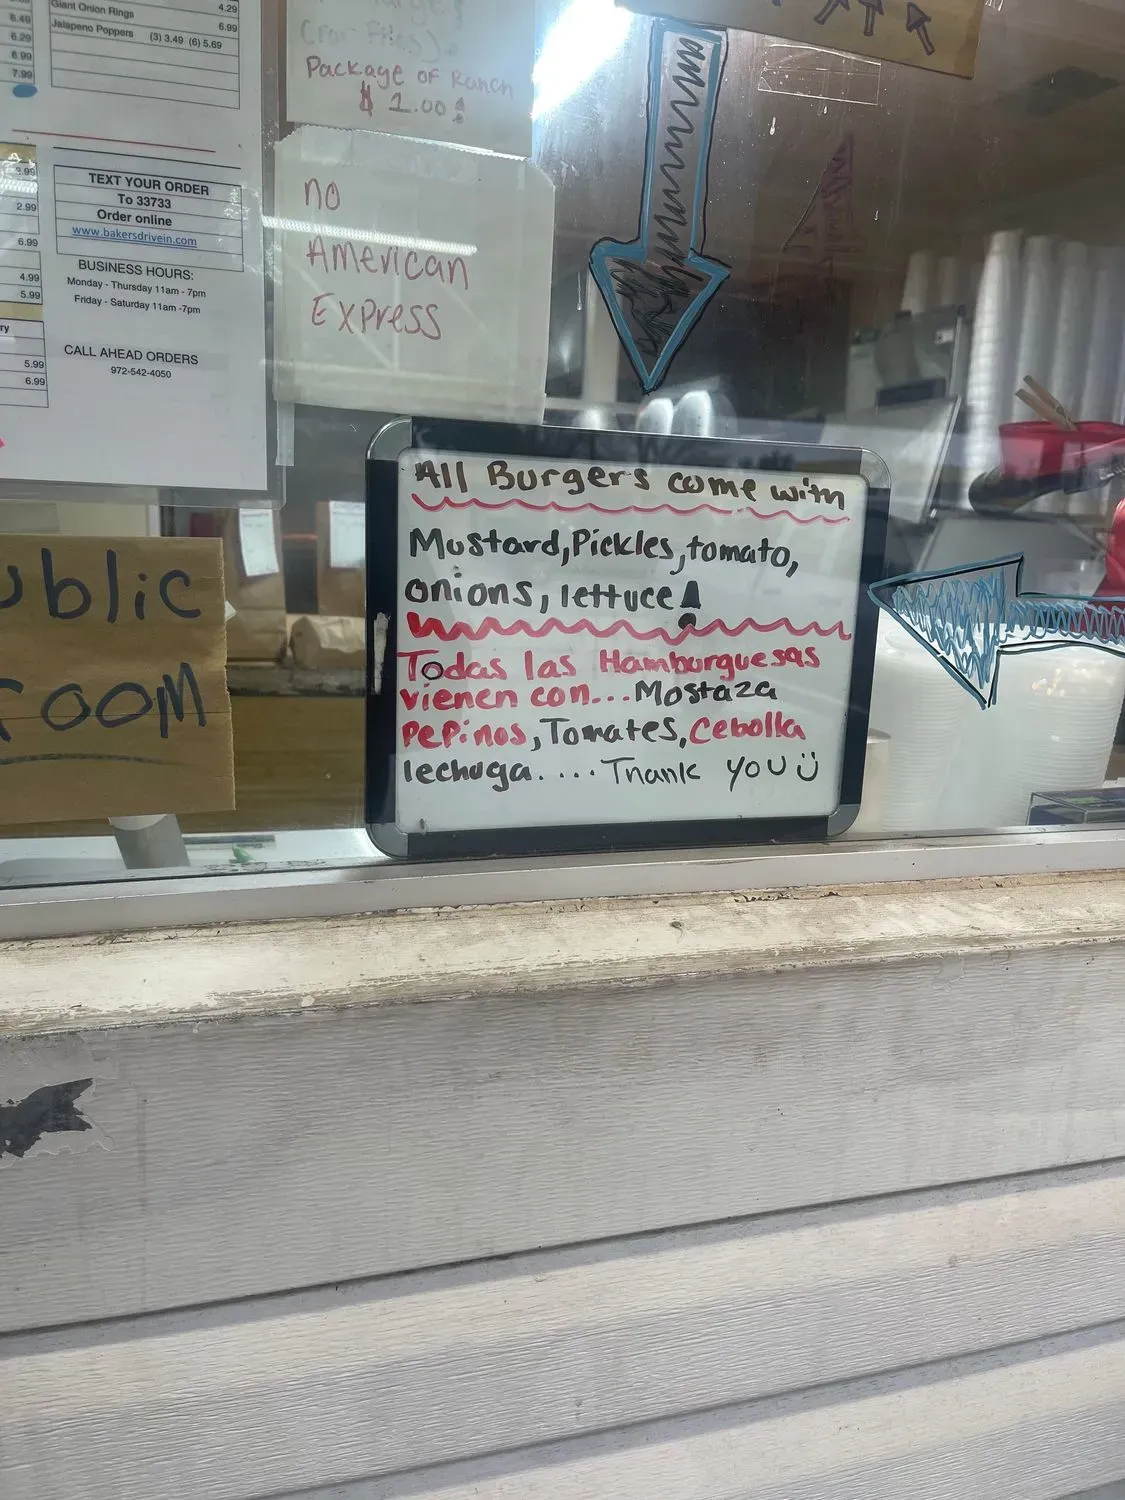 Giant Onion Rings 4.29
Jalapeno Poppers (3) 3.49 (6) 5.69 6.99
6.29
6.99
7.99
Package of Ranch
$ 1.00!
no
American
Express
2.99
6.99
4.99
5.99
5.99
6.99
TEXT YOUR ORDER
To 33733
Order online
www.bakersdrivein.com
BUSINESS HOURS:
Monday - Thursday 11am - 7pm
Friday - Saturday 11am -7pm
CALL AHEAD ORDERS
972-542-4050
All Burgers come with
Mustard, Pickles, tomato,
onions, lettuce!
Todas las Hamburguesas
vienen con... Mostaza
Pepinos, Tomates, Cebolla
lechuga.... Thank you